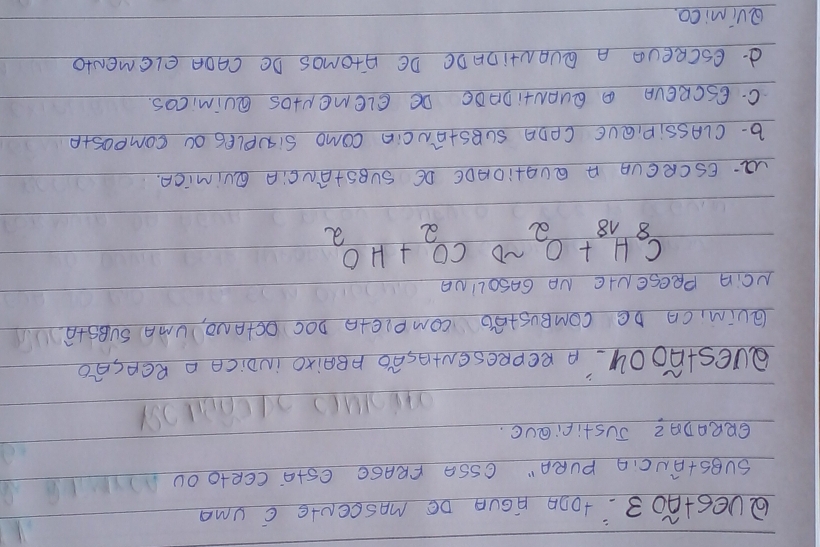 QUESTÃO 3 - "TODA ÁGUA DE MASCENTE É UMA
SUBSTÂNCIA PURA" ESSA FRASE ESTÁ CERTO OU
ERRADA? JUSTIFIQUE.
QUESTÃO 04 - "A REPRESENTAÇÃO ABAIXO INDICA A REAÇÃO
QUÍMICA DE COMBUSTÃO COMPLETA DOC OCTANO, UMA SUBSTÂ
NCIA PRESENTE NA GASOLINA
C8 H18 + O2 → CO2 + H O2
a- ESCREVA A QUATIDADE DE SUBSTÂNCIA QUÍMICA.
b- CLASSIFIQUE CADA SUBSTÂNCIA COMO SIMPLES OU COMPOSTA
c- ESCREVA A QUANTIDADE DE ELEMENTOS QUÍMICOS.
d- ESCREVA A QUANTIDADE DE ÁTOMOS DE CADA ELEMENTO
QUÍMICO